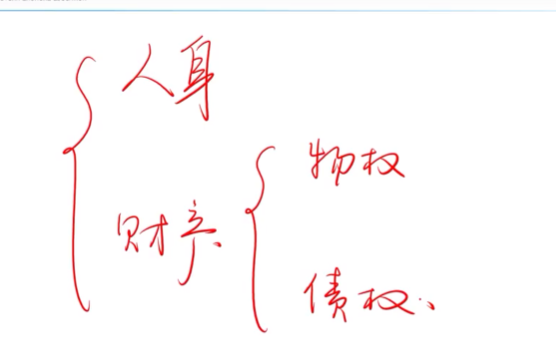 人身
财产
物权
债权